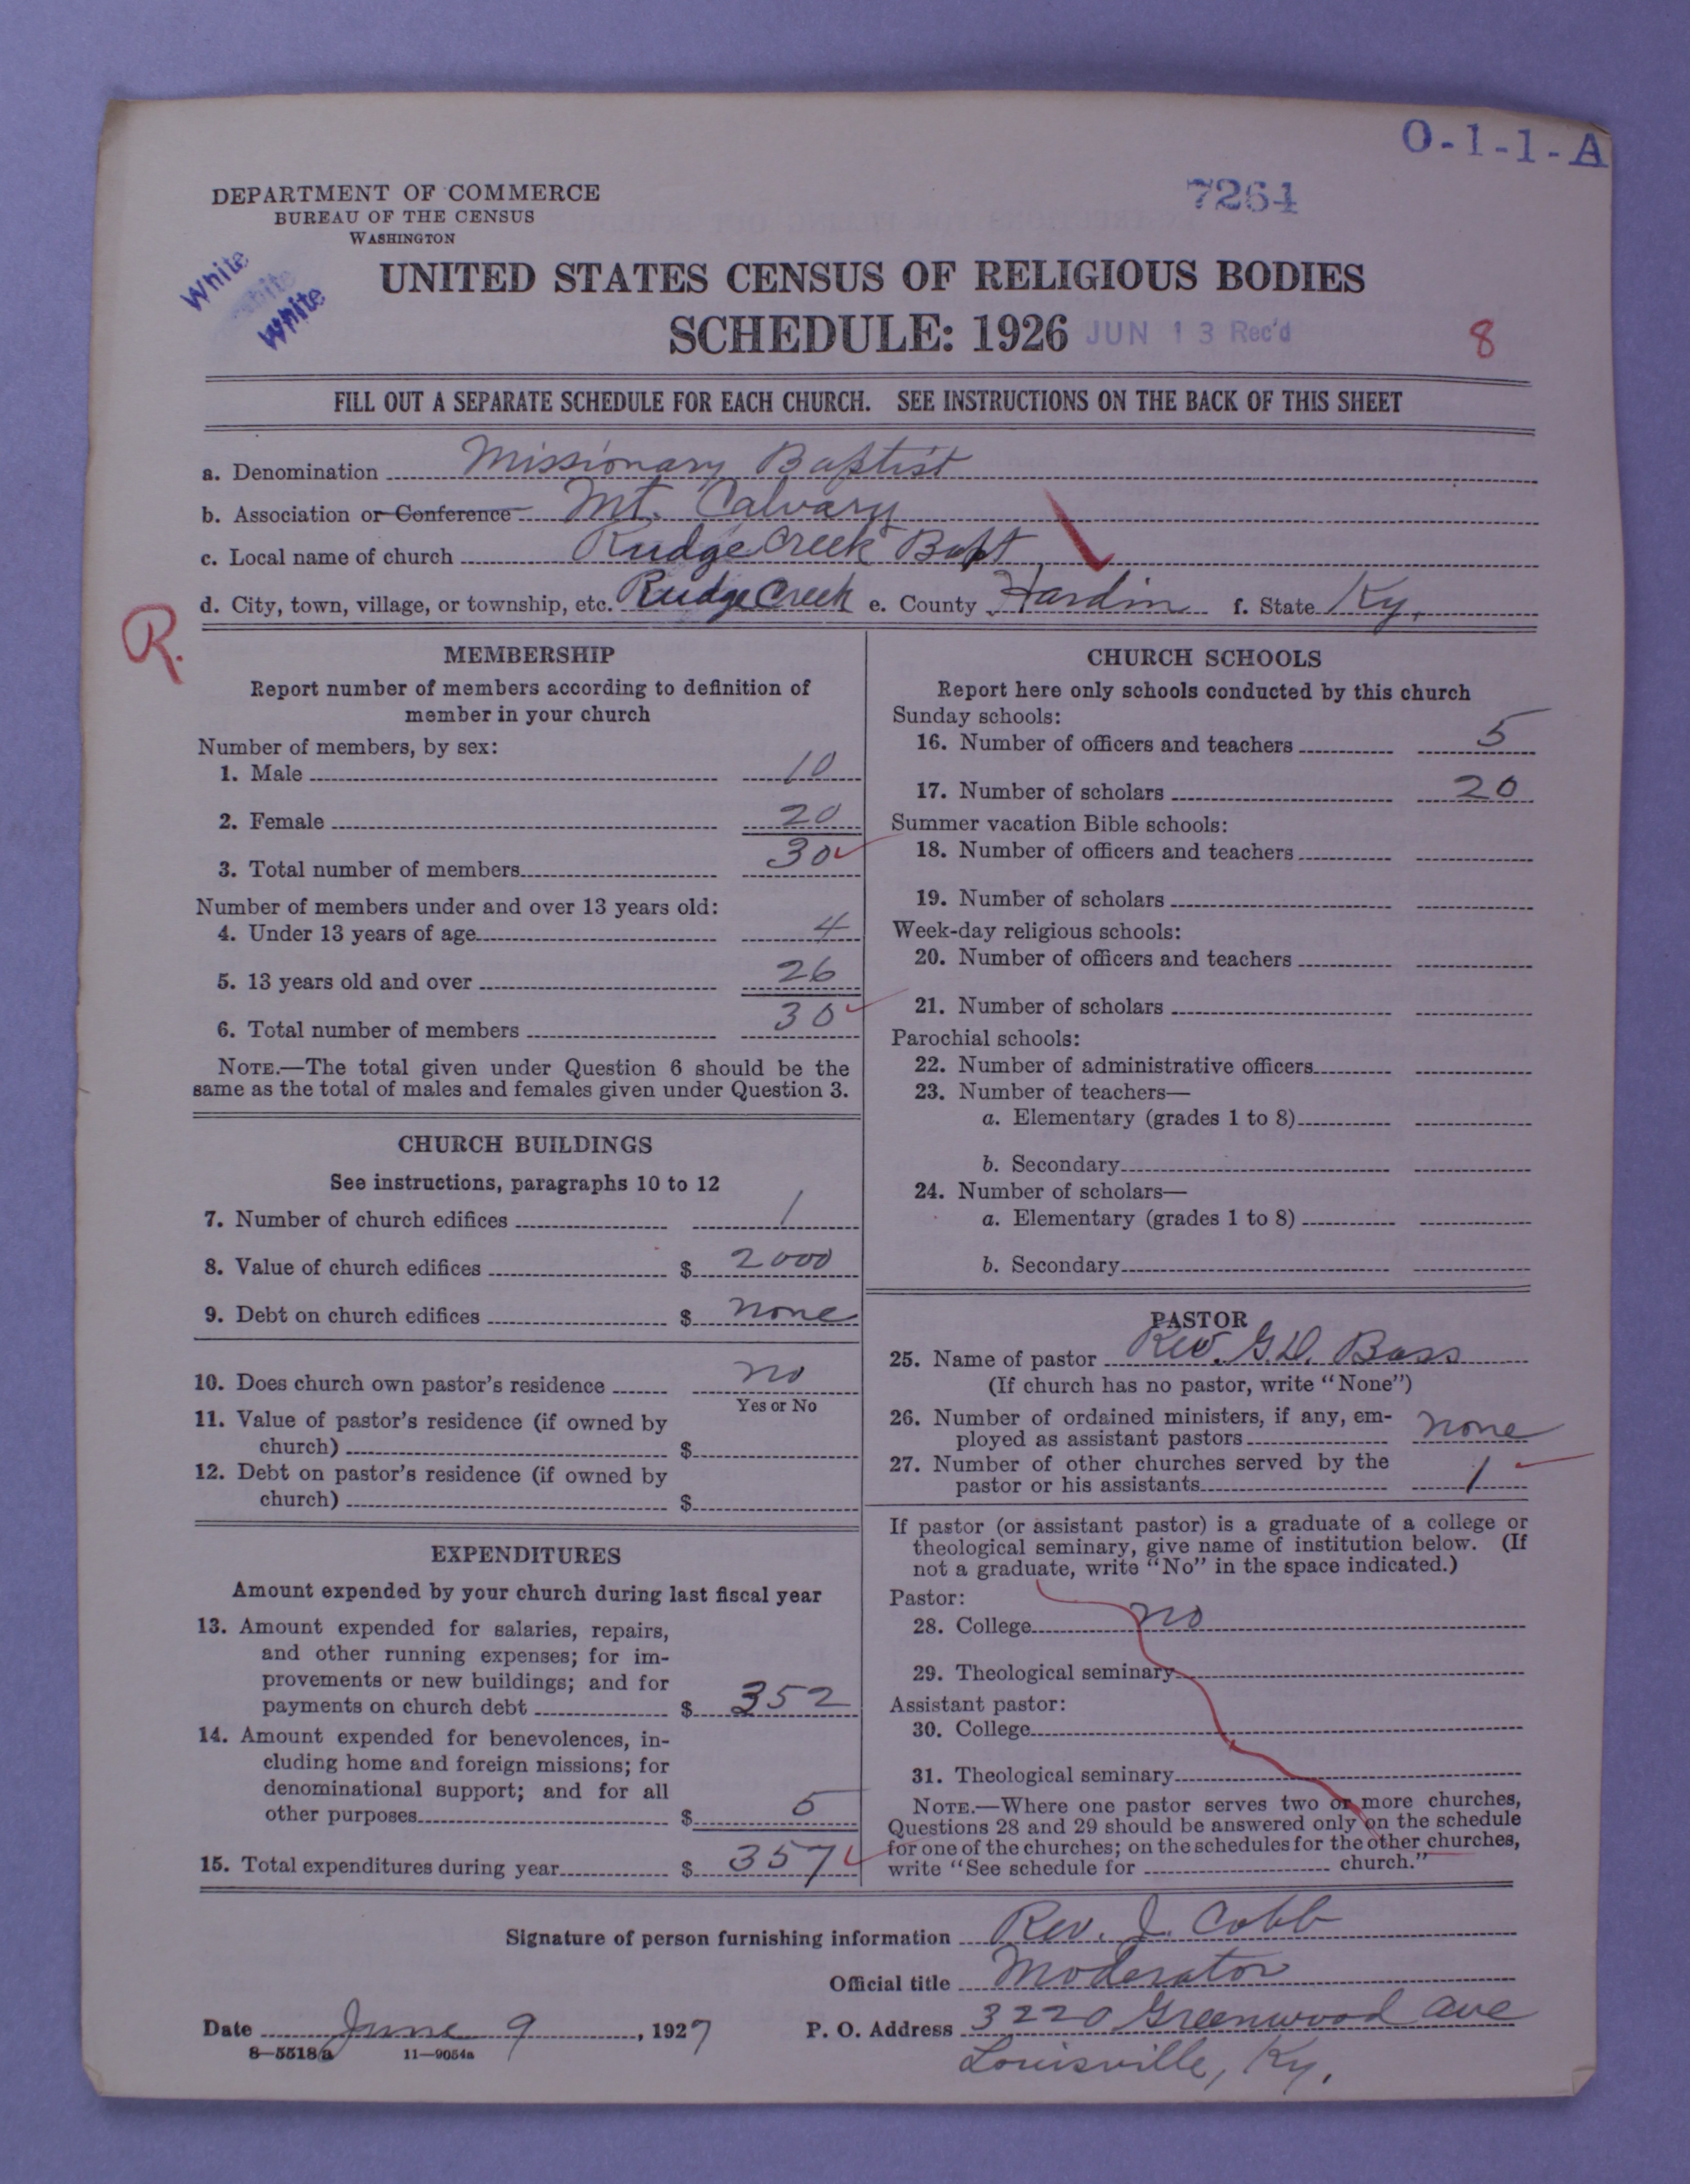 O-1-1-A
DEPARTMENT OF COMMERCE
BUREAU OF THE CENSUS
WASHINGTON
7264
White
White
White
UNITED STATES CENSUS OF RELIGIOUS BODIES
SCHEDULE: 1926 JUN 13 Rec'd
8
FILL OUT A SEPARATE SCHEDULE FOR EACH CHURCH. SEE INSTRUCTIONS ON THE BACK OF THIS SHEET
a. Denomination Missionary Baptist
b. Association or Conference Mt. Calvary
c. Local name of church Rudge Creek Bapt
d. City, town, village, or township, etc. Rudge Creek e. County Hardin f. State Ky.
R.
MEMBERSHIP
Report number of members according to definition of
member in your church
Number of members, by sex:
1. Male 10
2. Female 20
3. Total number of members 30
Number of members under and over 13 years old:
4. Under 13 years of age 4
5. 13 years old and over 26
6. Total number of members 30
NOTE.—The total given under Question 6 should be the
same as the total of males and females given under Question 3.
CHURCH BUILDINGS
See instructions, paragraphs 10 to 12
7. Number of church edifices 1
8. Value of church edifices $ 2000
9. Debt on church edifices $ none
10. Does church own pastor's residence no
Yes or No
11. Value of pastor's residence (if owned by
church) $
12. Debt on pastor's residence (if owned by
church) $
EXPENDITURES
Amount expended by your church during last fiscal year
13. Amount expended for salaries, repairs,
and other running expenses; for im-
provements or new buildings; and for
payments on church debt $ 352
14. Amount expended for benevolences, in-
cluding home and foreign missions; for
denominational support; and for all
other purposes $ 5
15. Total expenditures during year $ 357
CHURCH SCHOOLS
Report here only schools conducted by this church
Sunday schools:
16. Number of officers and teachers 5
17. Number of scholars 20
Summer vacation Bible schools:
18. Number of officers and teachers
19. Number of scholars
Week-day religious schools:
20. Number of officers and teachers
21. Number of scholars
Parochial schools:
22. Number of administrative officers
23. Number of teachers—
a. Elementary (grades 1 to 8)
b. Secondary
24. Number of scholars—
a. Elementary (grades 1 to 8)
b. Secondary
PASTOR
25. Name of pastor Rev. G.D. Bass
(If church has no pastor, write "None")
26. Number of ordained ministers, if any, em-
ployed as assistant pastors none
27. Number of other churches served by the
pastor or his assistants 1
If pastor (or assistant pastor) is a graduate of a college or
theological seminary, give name of institution below. (If
not a graduate, write "No" in the space indicated.)
Pastor:
28. College no
29. Theological seminary
Assistant pastor:
30. College
31. Theological seminary
NOTE.—Where one pastor serves two or more churches,
Questions 28 and 29 should be answered only on the schedule
for one of the churches; on the schedules for the other churches,
write "See schedule for church."
Signature of person furnishing information Rev. J. Cobb
Official title Moderator
Date June 9, 1927 P. O. Address 3220 Greenwood Ave
8-5518a 11-9054a
Louisville, Ky.